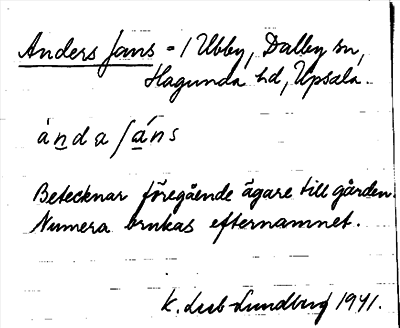 Anders Jans = / Ubby, Dalby sn,
Hagunda hd, Upsala.
ánda / áns
Betecknar föregående ägare till gården.
Numera brukas efternamnet.
K. Lundberg 1941.